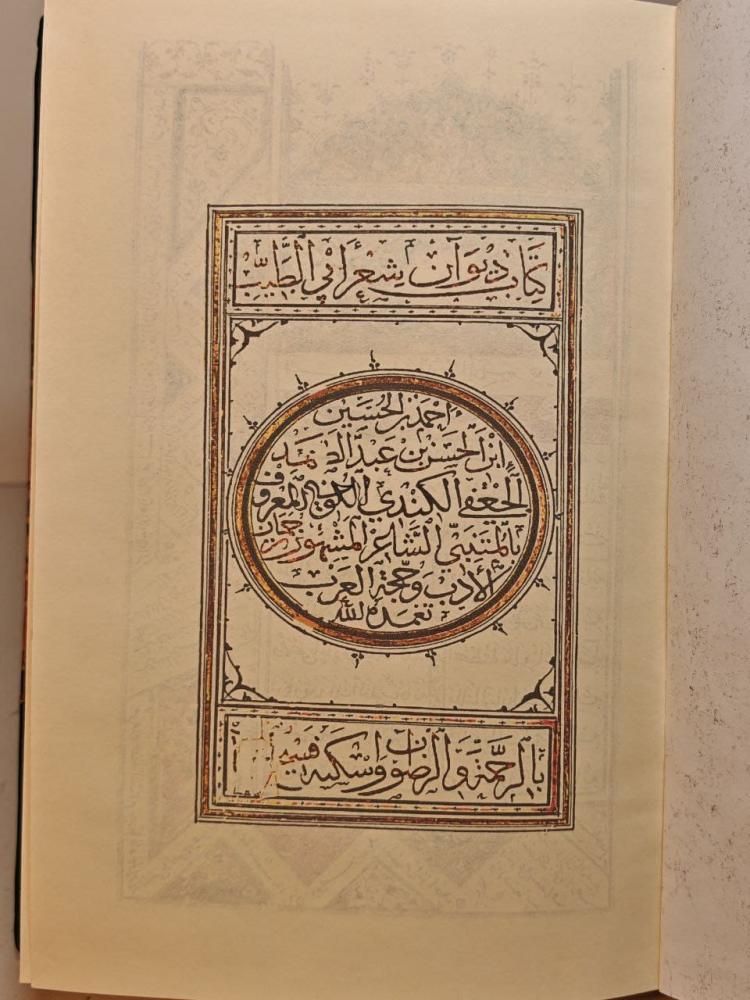 كتاب ديوان شعر أبي الطيب
احمد بن الحسين
ابن الحسن بن عبد الصمد
الجعفي الكندي الكوفي المعروف
بالمتنبي الشاعر المشهور
الأدب وحجة العرب
تغمده الله
بالرحمة والرضوان واسكنه فسيح